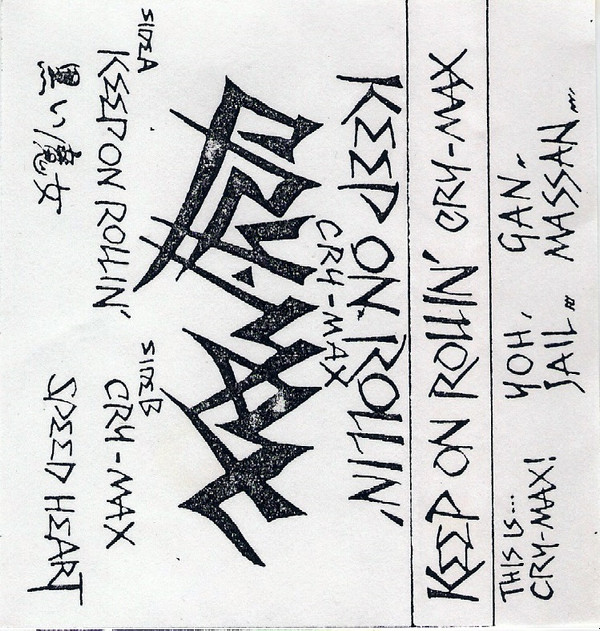 KEEP ON ROLLIN'
CRY-MAX
CRY-MAX
SIDE A
KEEP ON ROLLIN'
黒い魔女
SIDE B
CRY-MAX
SPEED HEART
KEEP ON ROLLIN' CRY-MAX
THIS IS...
CRY-MAX!
YOH,
JAIL...
GAN..
MASSAN...